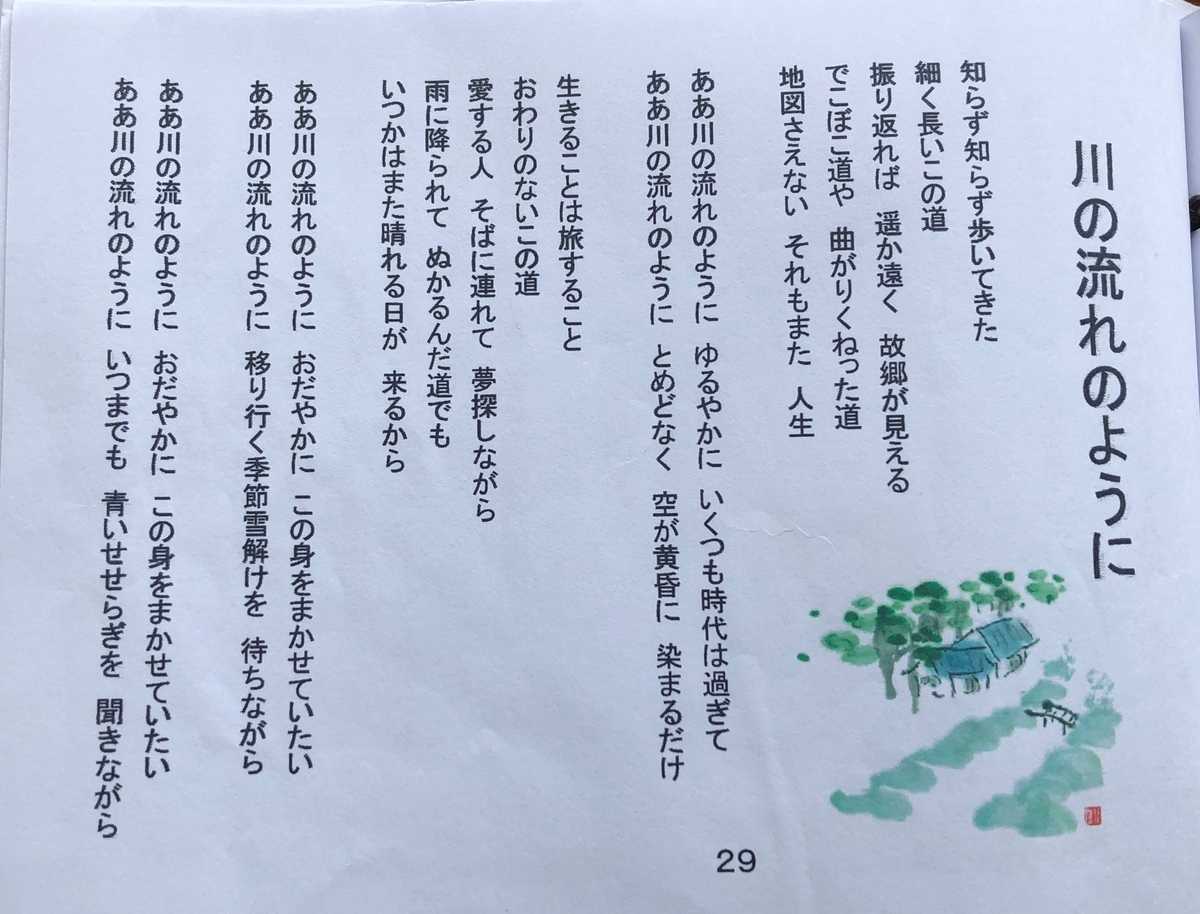 川の流れのように
知らず知らず歩いてきた
細く長いこの道
振り返れば 遥か遠く 故郷が見える
でこぼこ道や 曲がりくねった道
地図さえない それもまた 人生
ああ川の流れのように ゆるやかに いくつも時代は過ぎて
ああ川の流れのように とめどなく 空が黄昏に 染まるだけ
生きることは旅すること
おわりのないこの道
愛する人 そばに連れて 夢探しながら
雨に降られて ぬかるんだ道でも
いつかはまた晴れる日が 来るから
ああ川の流れのように おだやかに この身をまかせていたい
ああ川の流れのように 移り行く季節雪解けを 待ちながら
ああ川の流れのように おだやかに この身をまかせていたい
ああ川の流れのように いつまでも 青いせせらぎを 聞きながら
29